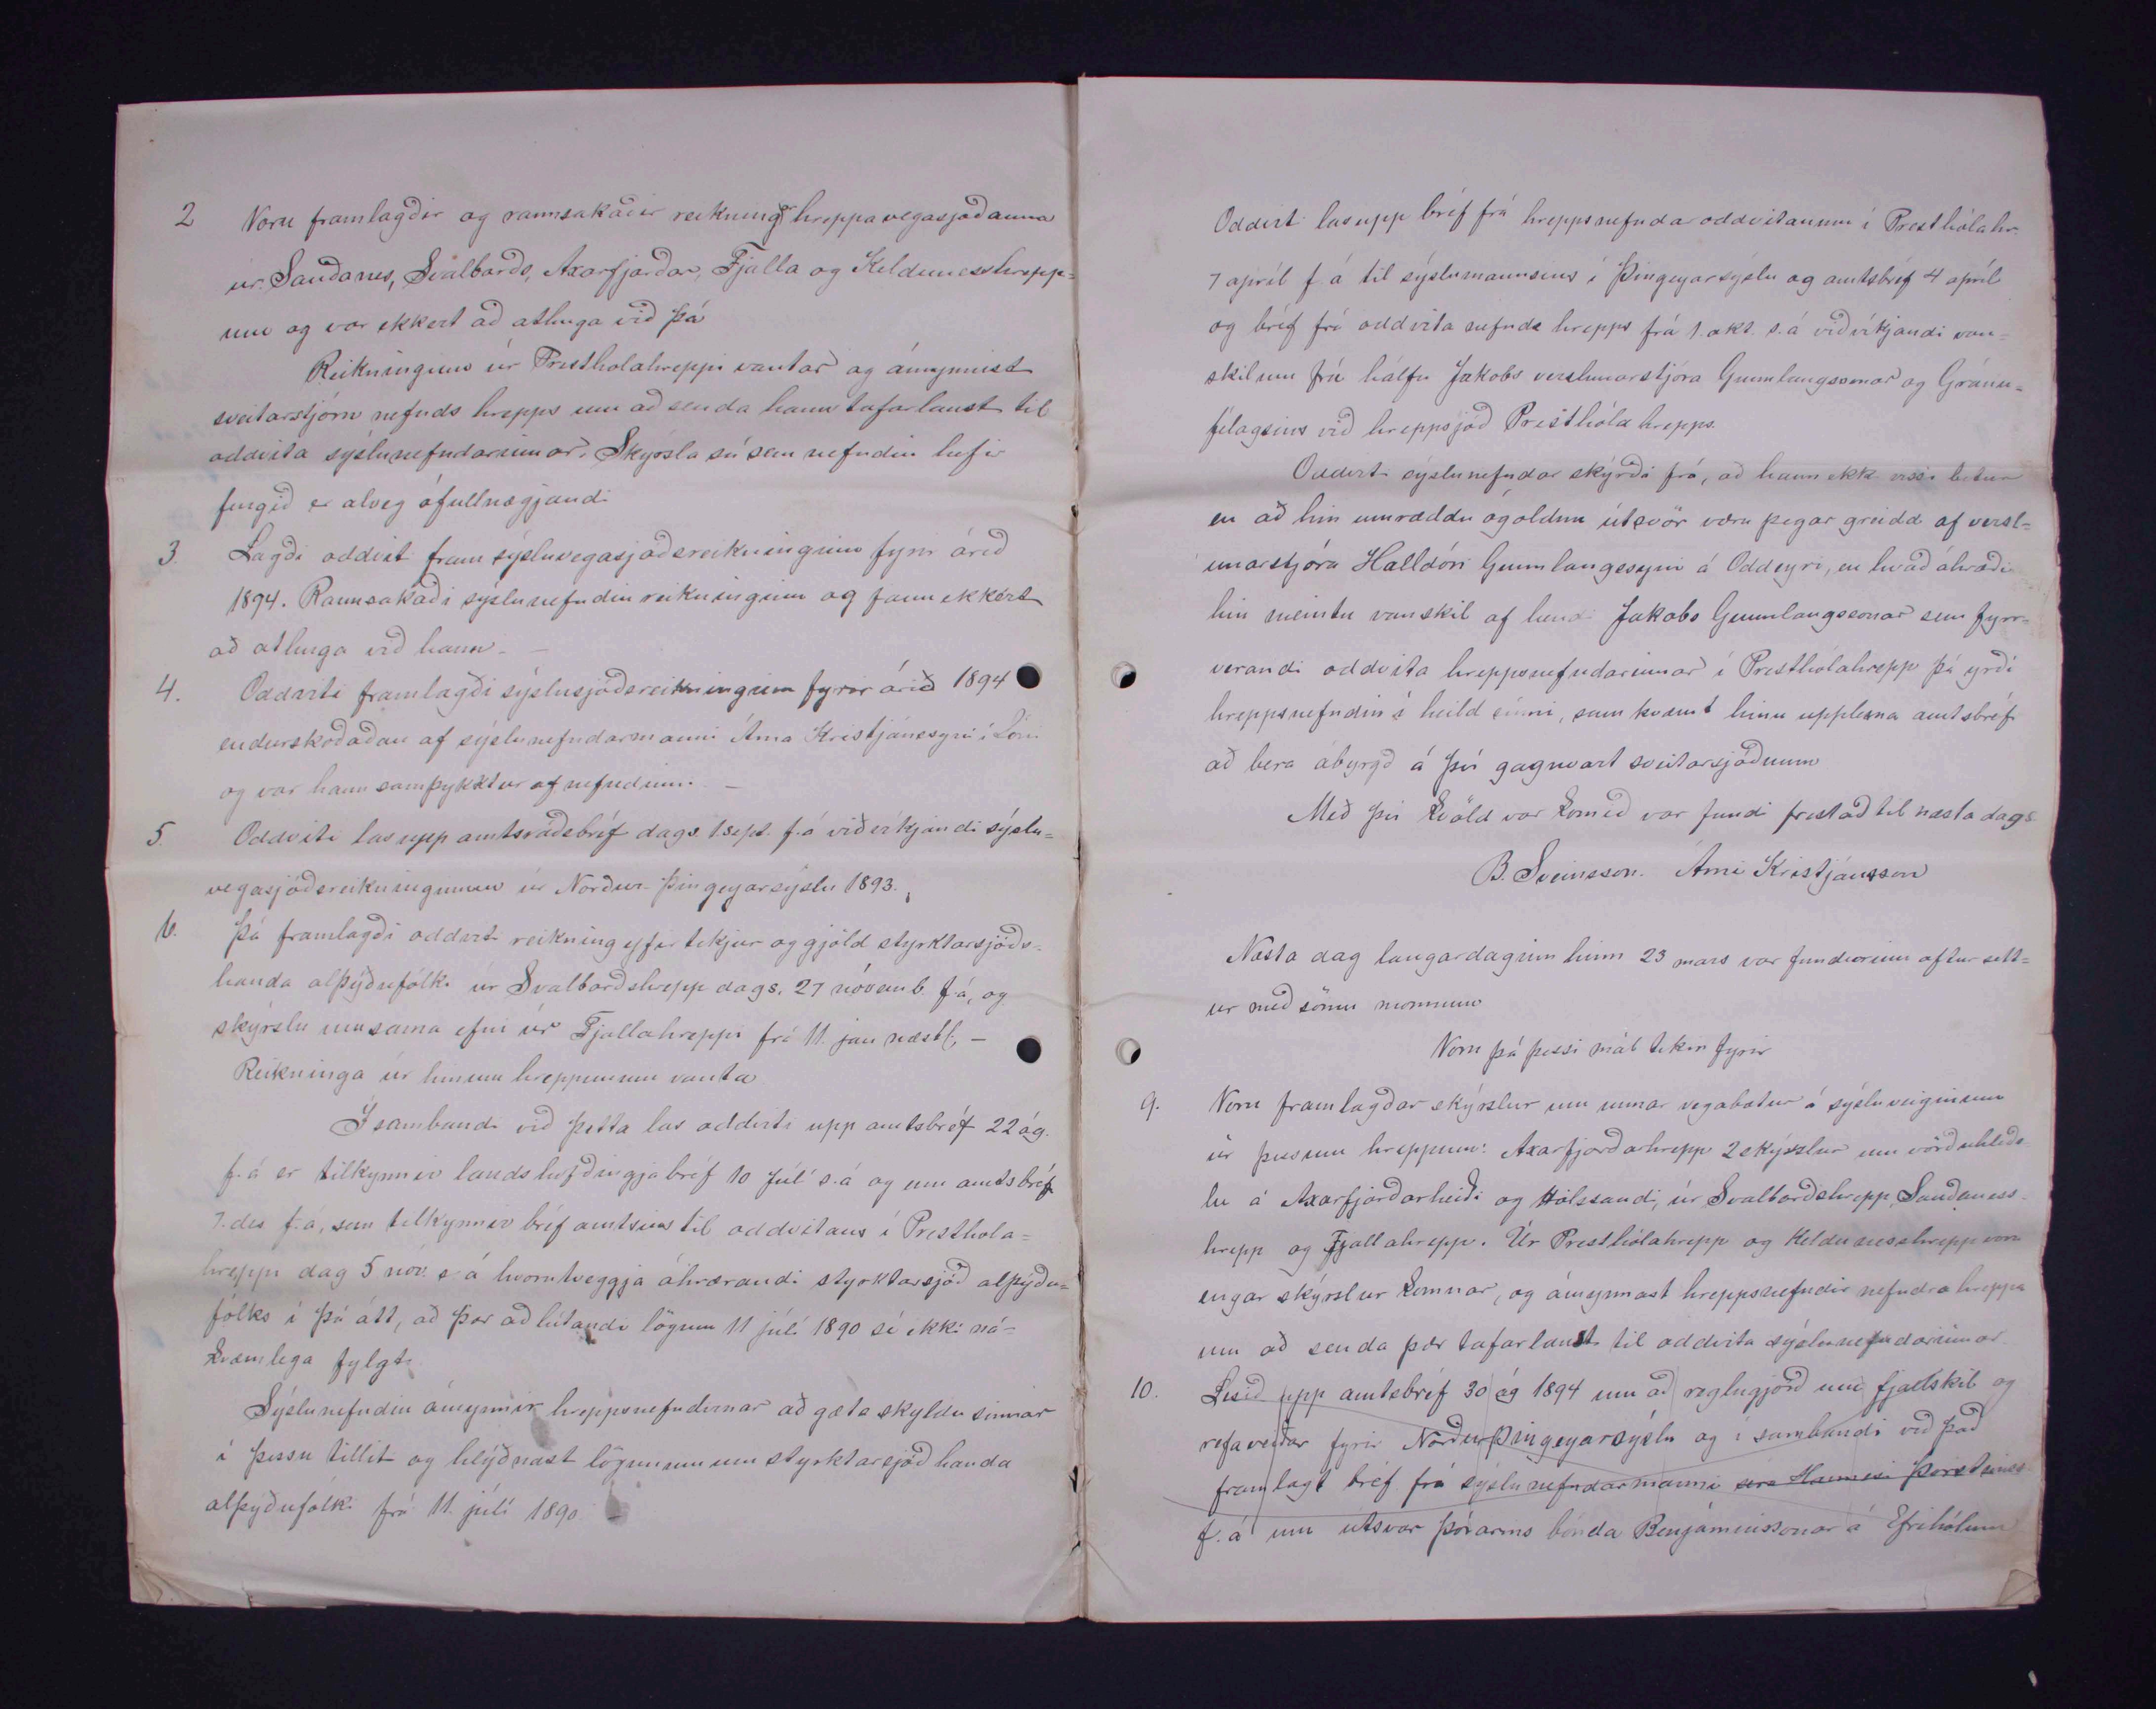 2 Voru framlagðir og rannsakaðir reikningar hreppavegasjóðanna
úr Sauðanes, Svalbarðs, Axarfjarðar, Fjalla og Kelduneshrepp=
um og var ekkert að athuga við þá
Reikninginn úr Prestholahreppi vantar og ámynnist
sveitarstjórn nefnds hrepps um að senda hann tafarlaust til
oddvita sýslunefndarinnar. Skýrsla sú sem nefndin hefir
fengið er alveg ófullnægjandi
3. Lagði oddviti fram sýsluvegasjóðsreikninginn fyrir árið
1894. Rannsakaði sýslunefndin reikninginn og fann ekkert
að athuga við hann. –
4. Oddviti framlagði sýslusjóðsreikninginn fyrir árið 1894
endurskoðaðan af sýslunefndarmanni Árna Kristjánssyni í Lóni
og var hann samþykktur af nefndinni. –
5. Oddviti las upp amtsráðsbréf dags. 1. sept. f.á viðvíkjandi sýslu=
vegasjóðsreikningunum úr Norður-Þingeyarsýslu 1893.
6. Þá framlagði oddviti reikning yfir tekjur og gjöld styrktarsjóðs
handa alþýðufólki úr Svalbarðshrepp dags. 27 nóvemb. f.á, og
skýrslu um sama efni úr Fjallahreppi frá 11. jan næstl. –
Reikninga úr hinum hreppunum vanta
Í sambandi við þetta las oddviti upp amtsbréf 22 ág.
f.á er tilkynnir landshöfðingjabréf 10 júlí s.á og um amtsbréf
7. des f.á, sem tilkynnir bréf amtsins til oddvitans í Presthola=
hreppi dag 5 nóv. s.á hvorutveggja áhrærandi styrktarsjóð alþýðu=
fólks í þá átt, að þar að lútandi lögum 11 júlí 1890 sé ekki ná=
kvæmlega fylgt.
Sýslunefndin ámynnir hreppsnefndirnar að gæta skyldu sinnar
í þessu tilliti og hlýðnast lögunum um styrktarsjóð handa
alþýðufólki frá 11. júlí 1890
Oddviti las upp bréf frá hreppsnefndaroddvitanum í Presthólahr.
7 apríl f.á til sýslumannsins í Þingeyarsýslu og amtsbréf 4 apríl
og bréf frá oddvita nefnds hrepps frá 1. okt. s.á viðvíkjandi van=
skilum frá hálfu Jakobs verslunarstjóra Gunnlaugssonar og Gránu=
félagsins við hreppsjóð Presthólahrepps.
Oddviti sýslunefndar skýrði frá, að hann ekki vissi betur
en að hin umræddu ógoldnu útsvör væru þegar greidd af versl=
unarstjóra Halldóri Gunnlaugssyni á Oddeyri, en hvað áhræði
hin meintu vanskil af hendi Jakobs Gunnlaugssonar sem fyrr=
verandi oddvita hreppsnefndarinnar í Presthólahrepp þá yrði
hreppsnefndin í heild sinni, samkvæmt hinu upplesna amtsbréfi
að bera ábyrgð á því gagnvart sveitarsjóðnum
Með því kvöld var komið var fundi frestað til næsta dags
B. Sveinsson. Árni Kristjánsson
Næsta dag laugardaginn hinn 23 mars var fundurinn aftur sett=
ur með sömu mönnum
Voru þá þessi mál tekin fyrir
9. Voru framlagðar skýrslur um unnar vegabætur á sýsluveginum
úr þessum hreppum: Axarfjarðarhrepp 2 skýrslur um vörðuhleðs
lu á Axarfjarðarheiði og Hólssandi, úr Svalbarðshrepp, Sauðaness=
hrepp og Fjallahrepp. Úr Presthólahrepp og Kelduneshrepp voru
engar skýrslur komnar, og ámynnast hreppsnefndir nefndra hreppa
um að senda þær tafarlaust til oddvita sýslunefndarinnar.
10. Lesið upp amtsbréf 30 ág 1894 um að reglugjörð um fjallskil og
refaveiðar fyrir Norðurþingeyarsýslu og í sambandi við það
framlagt bréf frá sýslunefndarmanni séra Hannesi Þorsteinss
f.á um útsvar Þórarins bónda Benjaminssonar á Efrihólum